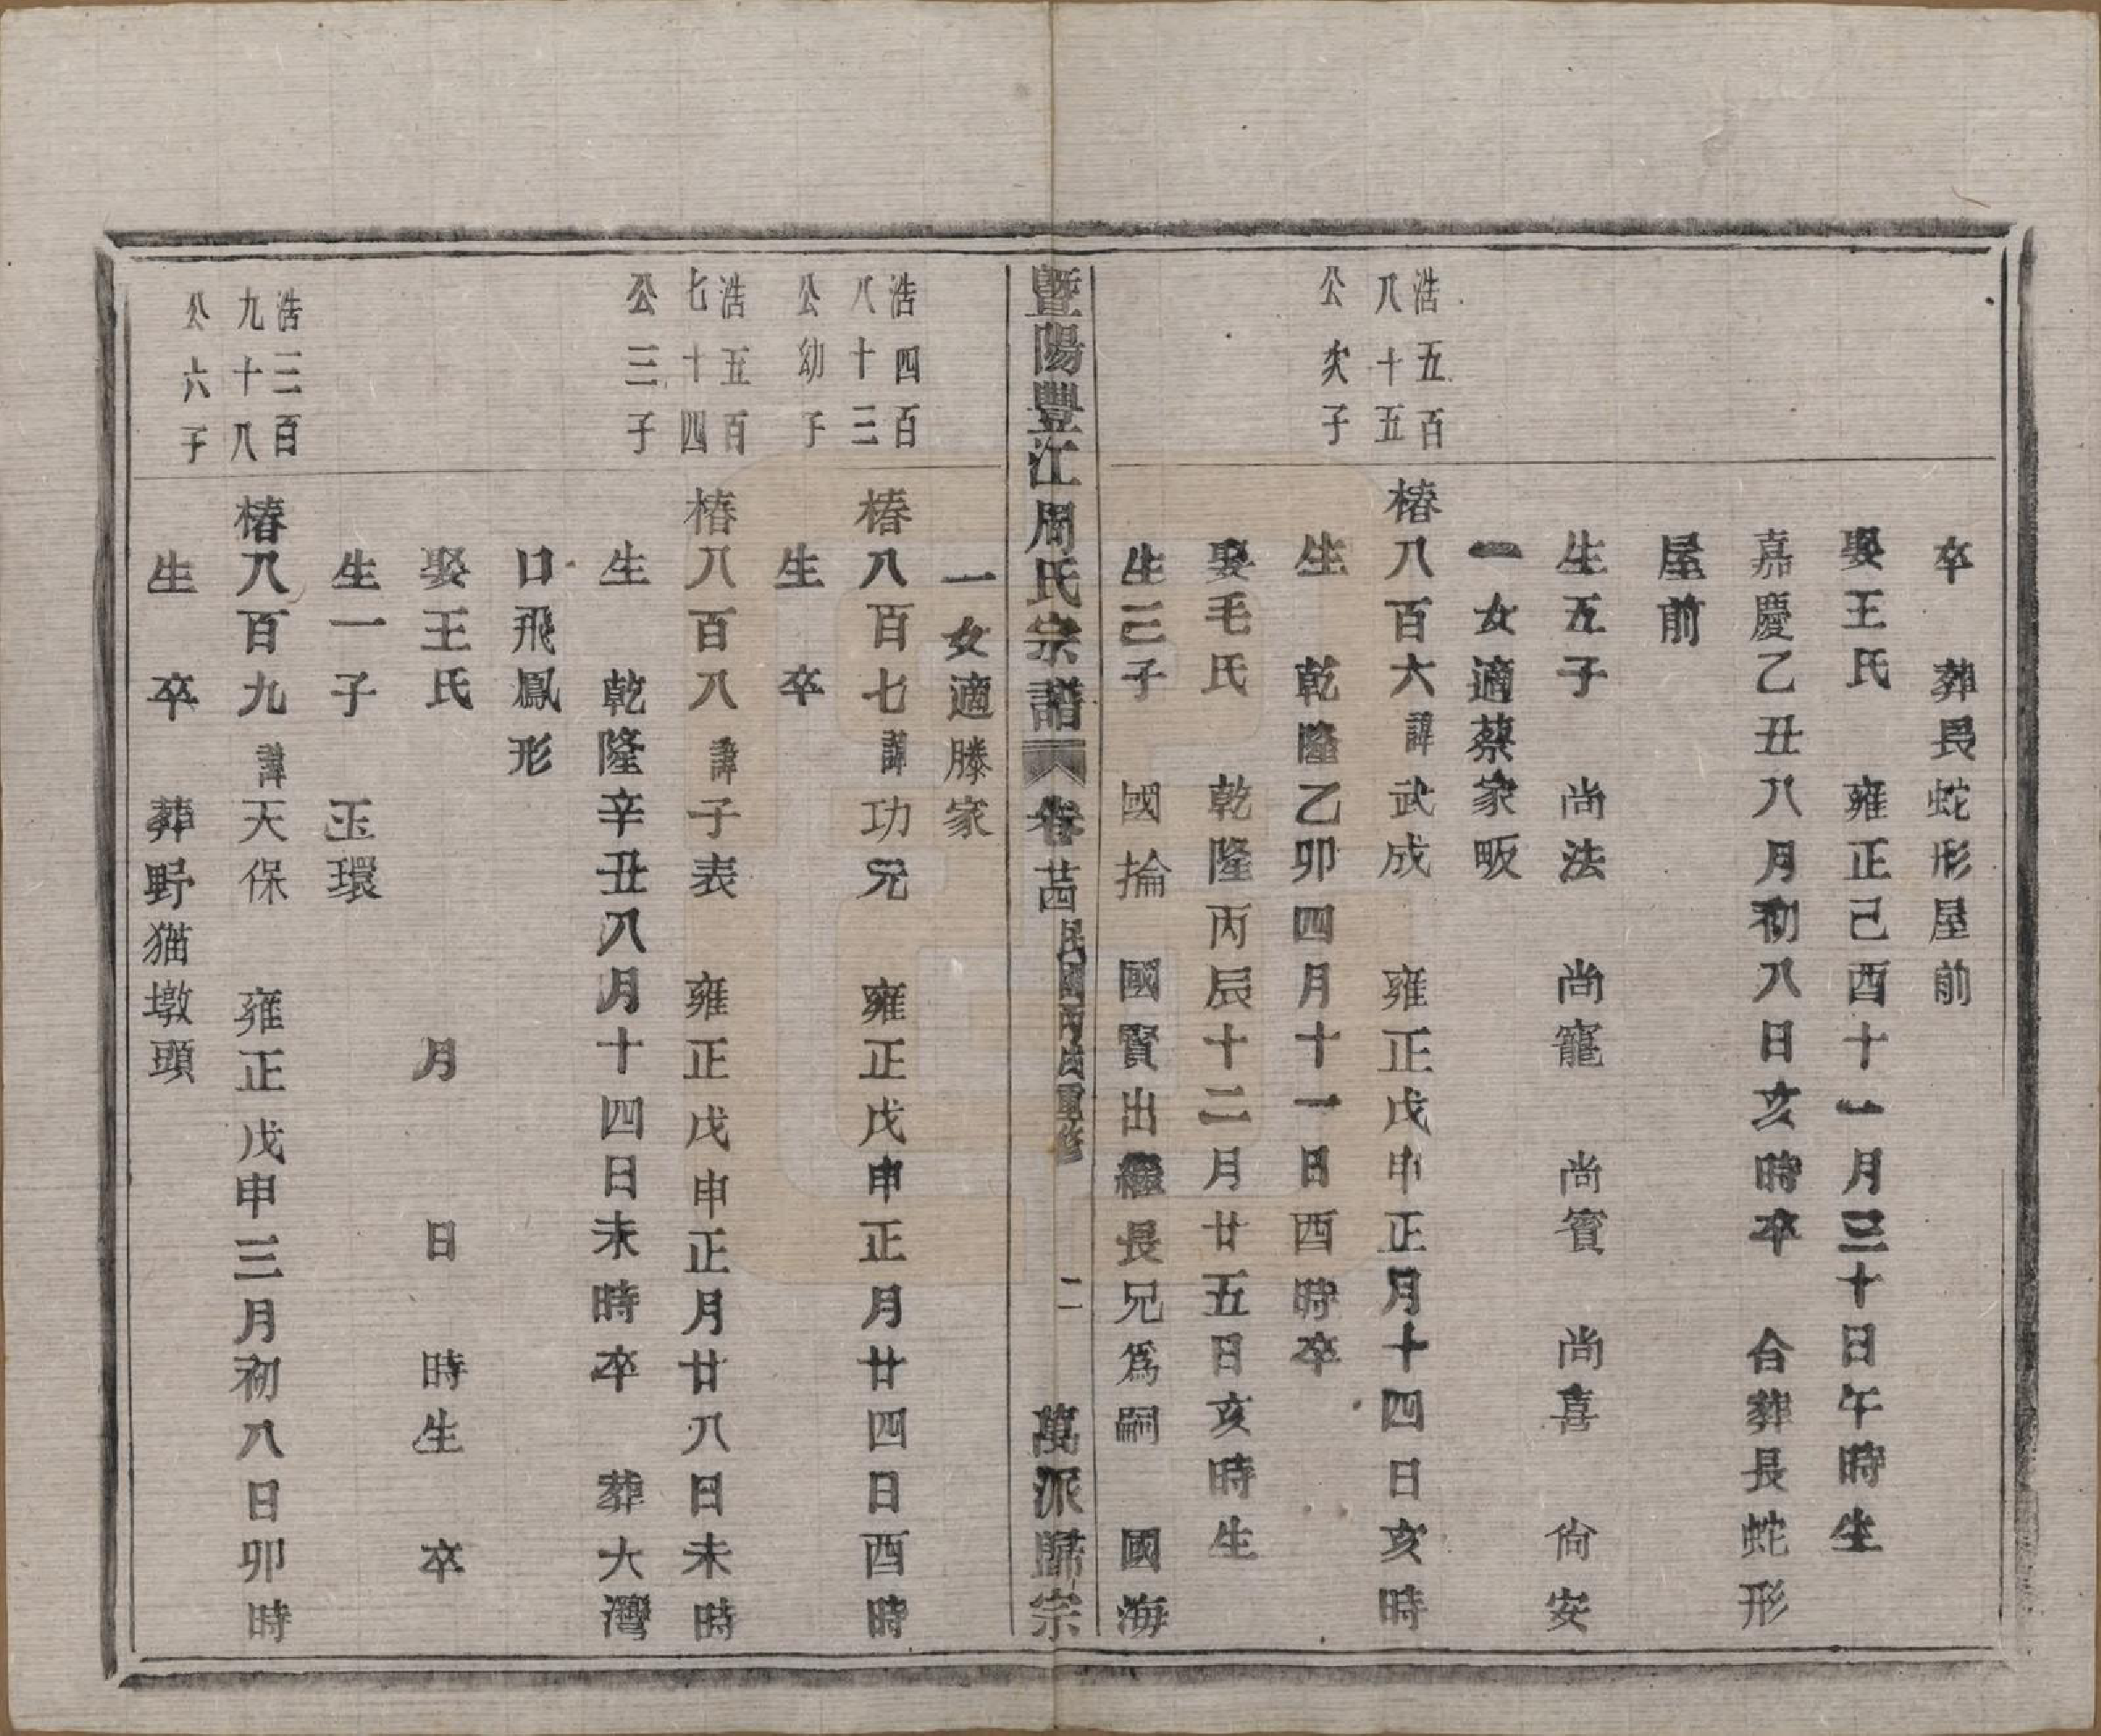 卒　葬長蛇形屋前
娶王氏　雍正己酉十一月三十日午時生
嘉慶乙丑八月初八日亥時卒　合葬長蛇形
屋前
生五子　尚法　尚寵　尚賓　尚喜　尙安
一女適蔡家畈
浩五百
八十五
公次子
椿八百六諱武成　雍正戊申正月十四日亥時
生　乾隆乙卯四月十一日酉時卒
娶毛氏　乾隆丙辰十二月廿五日亥時生
生三子　國掄　國賢出繼長兄爲嗣　國海
暨陽豐江周氏宗譜　卷茜民國丙戌重修　二　萬派歸宗
一女適滕家
浩四百
八十三
公幼子
椿八百七諱功兒　雍正戊申正月廿四日酉時
生　卒
浩五百
七十四
公三子
椿八百八諱子表　雍正戊申正月廿八日未時
生　乾隆辛丑八月十四日未時卒　葬大灣
口飛鳳形
娶王氏　月　日　時生　卒
生一子　玉環
浩三百
九十八
公六子
椿八百九諱天保　雍正戊申三月初八日卯時
生　卒　葬野猫墩頭